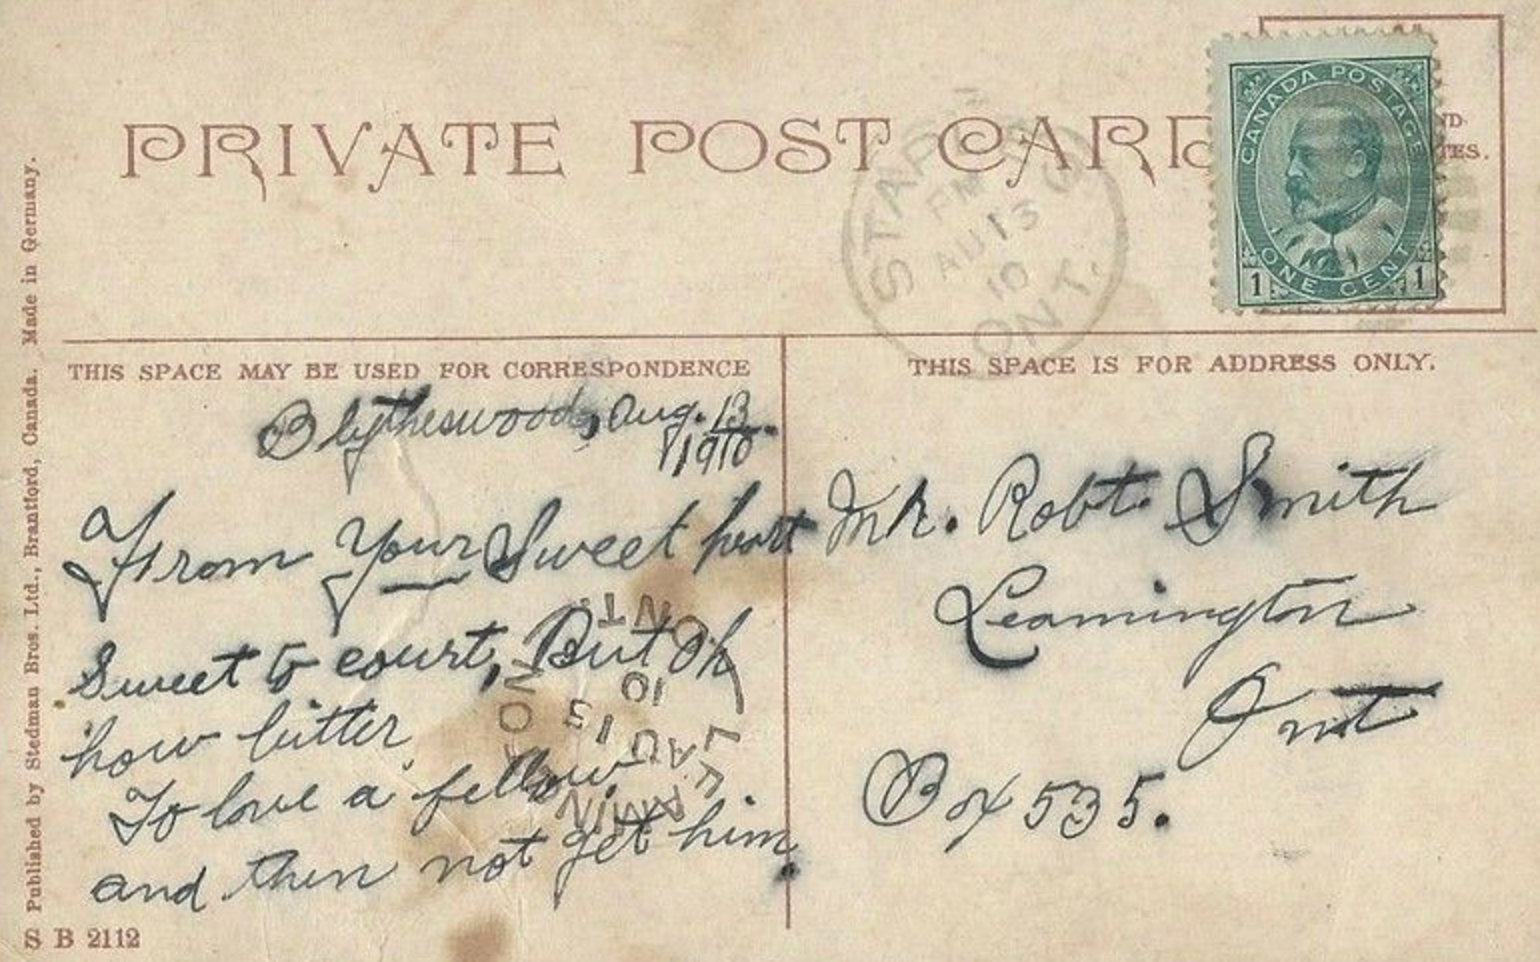 PRIVATE POST CARD
CANADA POSTAGE
ONE CENT
1 1
TES.
STAP
PM
AU 13
10
ONT.
THIS SPACE MAY BE USED FOR CORRESPONDENCE
Blytheswood, Aug. 13
1910
From Your Sweet heart
Sweet to court, But Oh
how bitter,
To love a fellow
and then not get him.
LEAMIN
AU 13
10
ONT.
THIS SPACE IS FOR ADDRESS ONLY.
Mr. Robt. Smith
Leamington
Ont
Box 535.
Published by Stedman Bros. Ltd., Brantford, Canada. Made in Germany.
S B 2112